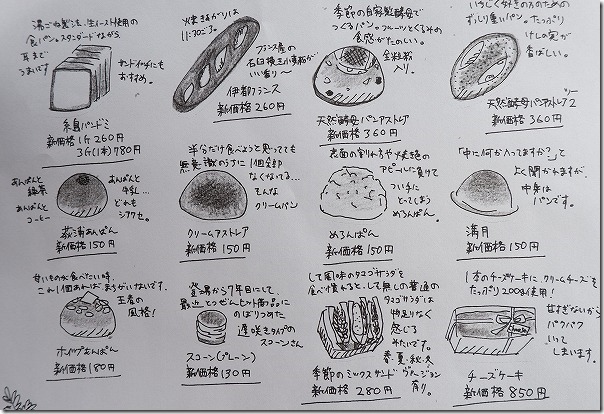 湯ごね製法、生イースト使用の
食パン。スタンダードながら
耳まで
うまいです
サンドイッチにも
おすすめ。
糸島パンドミ
新価格 1斤 260円
3斤(1本) 780円
焼きあがりは
11:30ごろ。
フランス産の
石臼挽き小麦粉が
いい香り〜
伊都フランス
新価格 260円
季節の自家製酵母で
つくるパン。フルーツとくるみの
食感がたのしい。
全粒粉
入り。
天然酵母パンアストレア
新価格 360円
いちじく好きの方のための
ずっしり重いパン。たっぷり
けしの実が
香ばしい。
天然酵母パンアストレア2
ツー
新価格 360円
あんぱんと
緑茶
あんぱんと
コーヒー
あんぱんと
牛乳…
どれも
シアワセ。
荻浦あんぱん
新価格 150円
半分だけ食べようと思っても
無意識のうちに1個全部
なくなってる…
そんな
クリームパン
クリームアストレア
新価格 150円
表面の割れ方や焼色の
アピールに負けて
つい手に
とってしまう
めろんぱん。
めろんぱん
新価格 150円
「中に何か入ってますか?」って
よく聞かれますが、
中身は
パンです。
満月
新価格 150円
甘いものが食べたい時、
これ1個あればまちがいないです。
王者の
風格!
ホイップあんぱん
新価格 180円
登場から7年目にして
最近とつぜんヒット商品に
のぼりつめた
遅咲きタイプの
スコーンさん
スコーン(プレーン)
新価格 130円
して風味のタマゴサラダを
食べ慣れると、して無しの普通の
タマゴサラダは
物足りなく
感じる
みたいです。
春・夏・秋・冬
ヴァージョン
有り。
季節のミックスサンド
新価格 280円
1本のチーズケーキにクリームチーズを
たっぷり200g使用!
甘すぎないから
パクパク
いって
しまいます。
チーズケーキ
新価格 850円